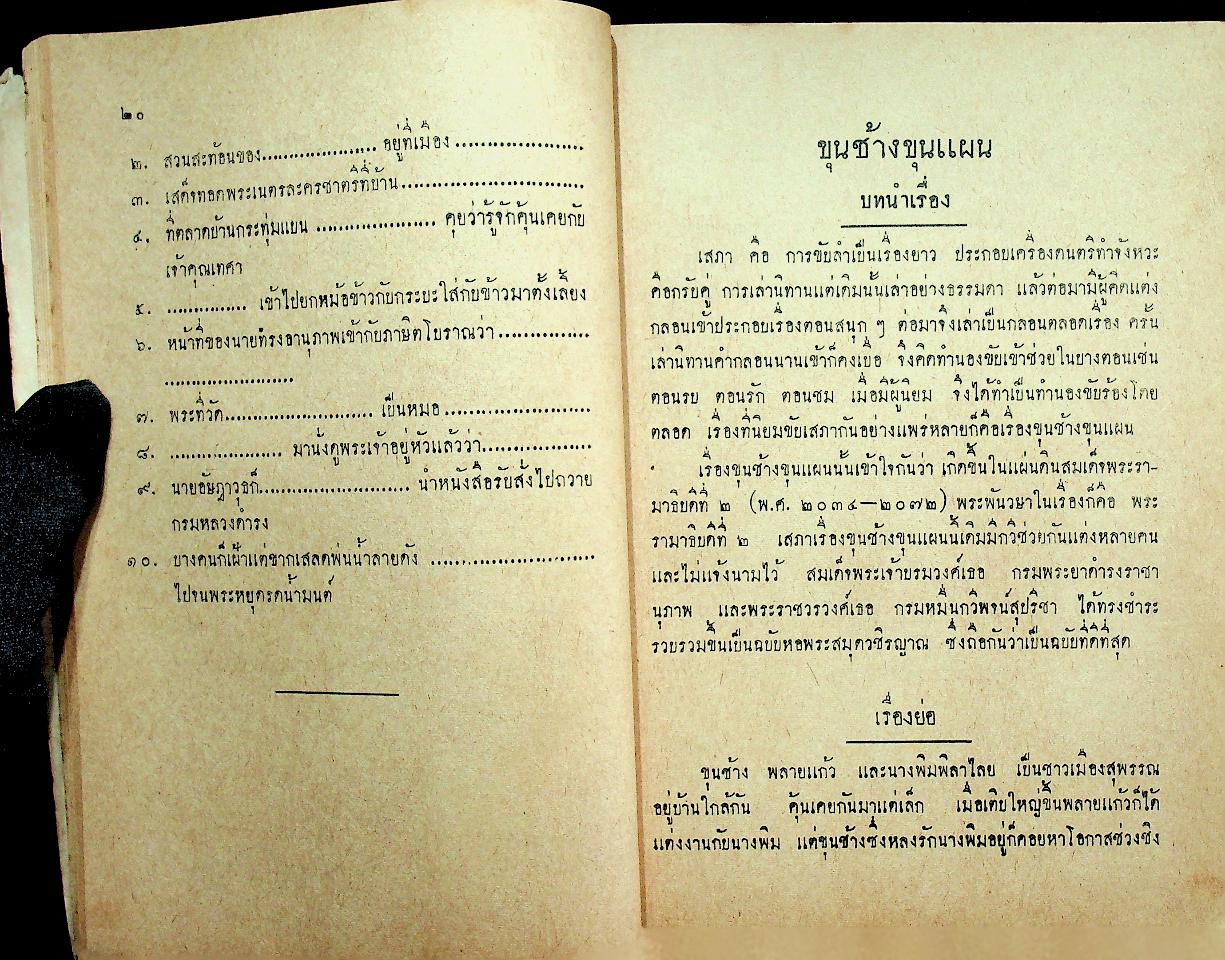 ๒๐
๒. สวนสะท้อนของ.................... อยู่ที่เมือง......................
๓. เสด็จทอดพระเนตรละครชาตรีที่บ้าน..............................
๔. ที่ตลาดบ้านกระทุ่มแบน .................... คุยว่ารู้จักคุ้นเคยกับ
เจ้าคุณเทศา
๕. .............. เข้าไปยกหม้อข้าวกับกระบะใส่กับข้าวมาตั้งเลี้ยง
๖. หน้าที่ของนายทรงอานุภาพเข้ากับภาษิตโบราณว่า...............
.......................
๗. พระที่วัด......................... เป็นหมอ.........................
๘. ................... มานั่งดูพระเจ้าอยู่หัวแล้วว่า..................
๙. นายอัษฎาวุธก็......................... นำหนังสือรับสั่งไปถวาย
กรมหลวงดำรง
๑๐. บางคนก็เฝ้าแต่ขากเสลดพ่นน้ำลายดัง ............................
ไปจนพระหยุดรดน้ำมนต์
ขุนช้างขุนแผน
บทนำเรื่อง
เสภา คือ การขับลำเป็นเรื่องยาว ประกอบเครื่องดนตรีทำจังหวะ
คือกรับคู่ การเล่านิทานแต่เดิมนั้นเล่าอย่างธรรมดา แล้วต่อมามีผู้คิดแต่ง
กลอนเข้าประกอบเรื่องตอนสนุก ๆ ต่อมาจึงเล่าเป็นกลอนตลอดเรื่อง ครั้น
เล่านิทานคำกลอนนานเข้าก็คงเบื่อ จึงคิดทำนองขับเข้าช่วยในบางตอนเช่น
ตอนรบ ตอนรัก ตอนชม เมื่อมีผู้นิยม จึงได้ทำเป็นทำนองขับร้องโดย
ตลอด เรื่องที่นิยมขับเสภากันอย่างแพร่หลายก็คือเรื่องขุนช้างขุนแผน
เรื่องขุนช้างขุนแผนนั้นเข้าใจกันว่า เกิดขึ้นในแผ่นดินสมเด็จพระรา-
มาธิบดีที่ ๒ (พ.ศ. ๒๐๓๔—๒๐๗๒) พระพันวษาในเรื่องก็คือ พระ
รามาธิบดีที่ ๒ เสภาเรื่องขุนช้างขุนแผนนี้เดิมมีกวีช่วยกันแต่งหลายคน
และไม่แจ้งนามไว้ สมเด็จพระเจ้าบรมวงศ์เธอ กรมพระยาดำรงราชา
นุภาพ และพระราชวรวงศ์เธอ กรมหมื่นกวีพจน์สุปรีชา ได้ทรงชำระ
รวบรวมขึ้นเป็นฉบับหอพระสมุดวชิรญาณ ซึ่งถือกันว่าเป็นฉบับที่ดีที่สุด
เรื่องย่อ
ขุนช้าง พลายแก้ว และนางพิมพิลาไลย เป็นชาวเมืองสุพรรณ
อยู่บ้านใกล้กัน คุ้นเคยกันมาแต่เล็ก เมื่อเติบใหญ่ขึ้นพลายแก้วก็ได้
แต่งงานกับนางพิม แต่ขุนช้างซึ่งหลงรักนางพิมอยู่ก็คอยหาโอกาสช่วงชิง